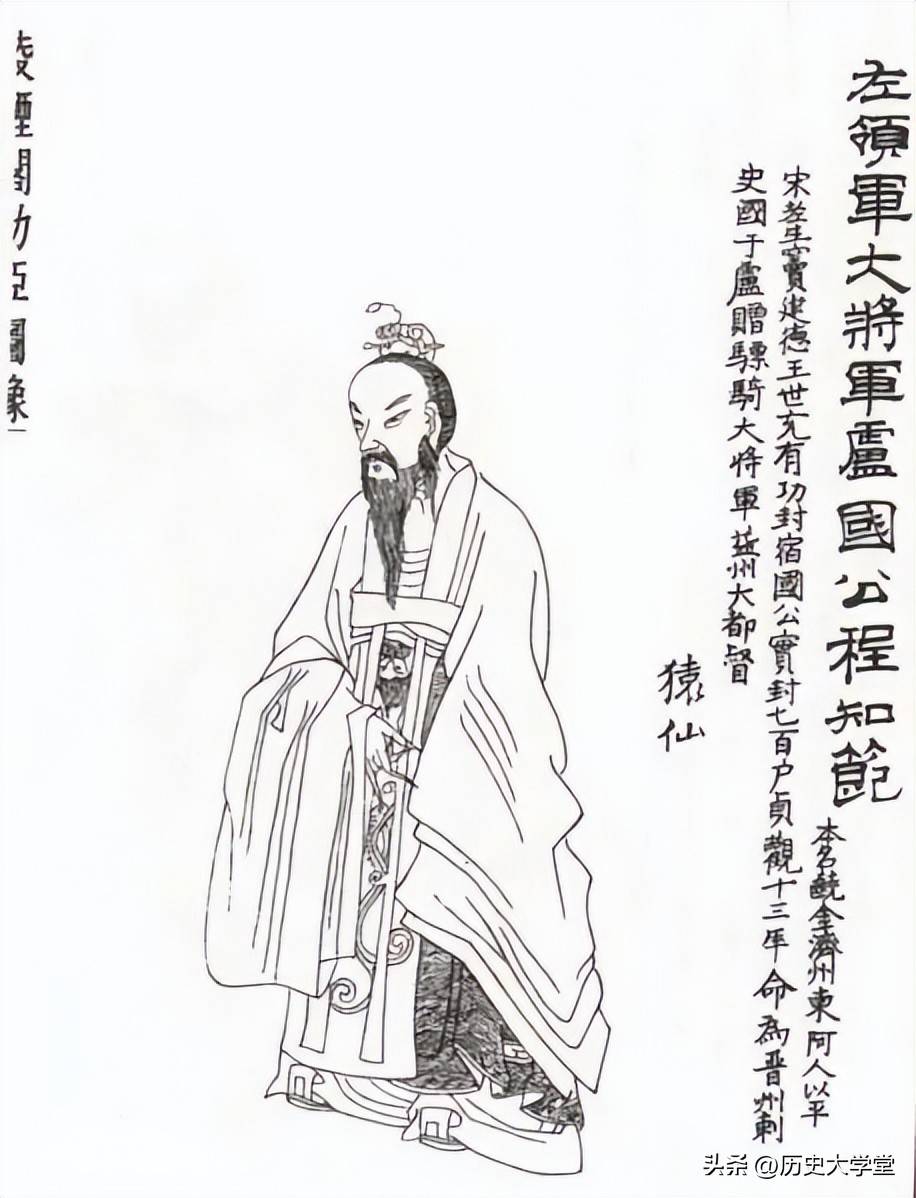 左領軍大將軍盧國公程知節
本名齩金濟州東阿人以平
宋老生竇建德王世充有功封宿國公實封七百户貞觀十三年命為晋州刺
史國于盧贈驃騎大将軍益州大都督
猿仙
凌煙閣功臣圖像一
头条 @历史大学堂